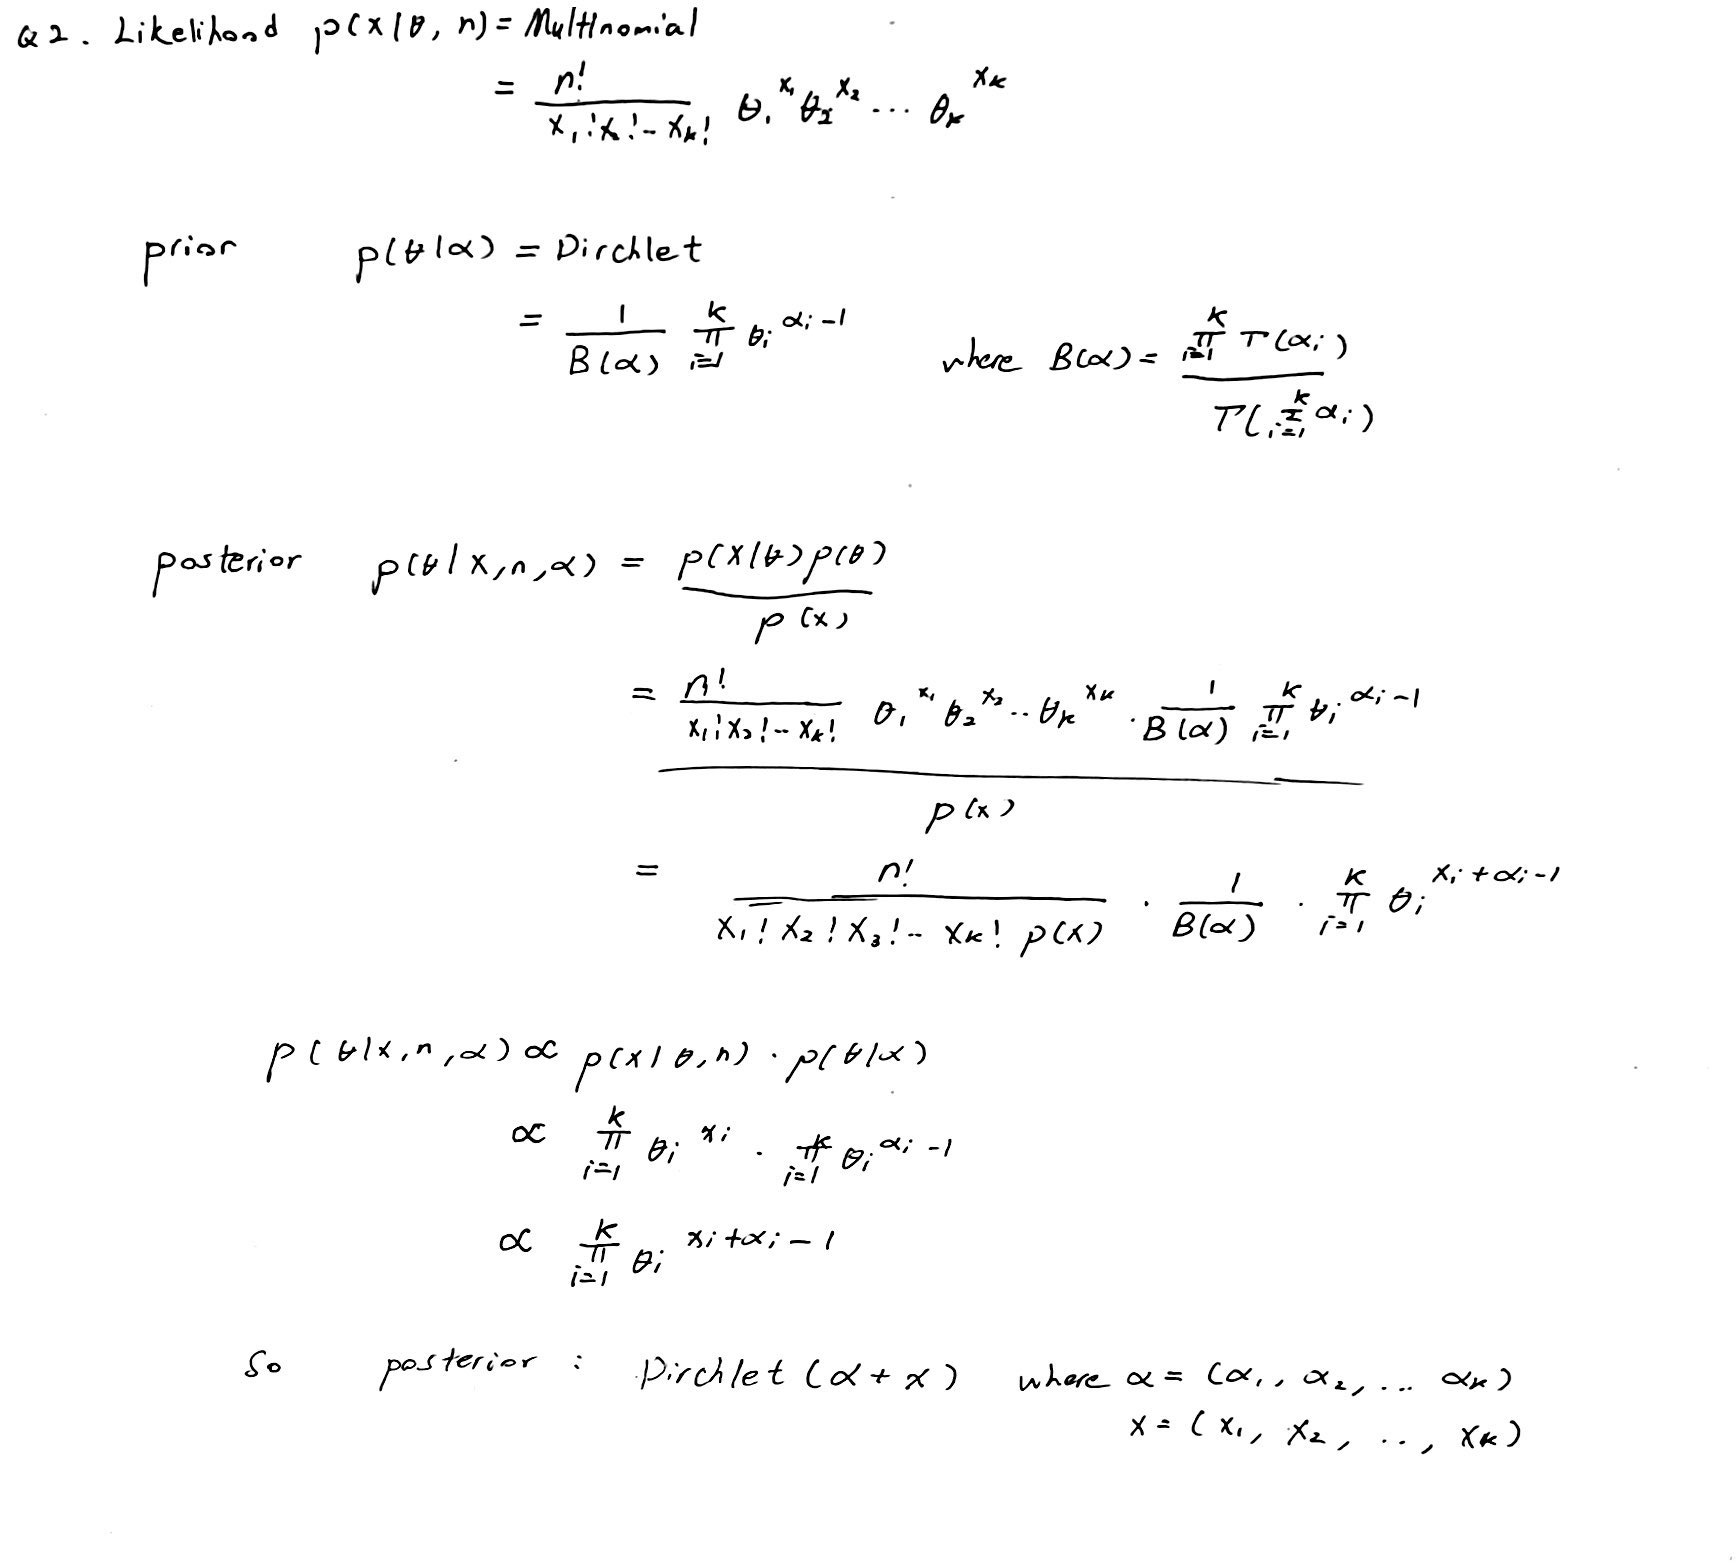 Q2. Likelihood p(x|θ, n) = Multinomial
= n! / x₁!x₂!--xₖ! θ₁^x₁ θ₂^x₂ ... θₖ^xₖ
prior p(θ|α) = Dirchlet
= 1 / B(α) ∏_{i=1}^{k} θᵢ^{αᵢ-1} where B(α) = ∏_{i=1}^{k} Γ(αᵢ) / Γ(∑_{i=1}^{k} αᵢ)
posterior p(θ|x,n,α) = p(x|θ)p(θ) / p(x)
= n! / x₁!x₂!--xₖ! θ₁^x₁ θ₂^x₂ .. θₖ^xₖ · 1 / B(α) ∏_{i=1}^{k} θᵢ^{αᵢ-1}
p(x)
= n! / x₁! x₂! x₃!-- xₖ! p(x) · 1 / B(α) · ∏_{i=1}^{k} θᵢ^{xᵢ+αᵢ-1}
p(θ|x,n,α) ∝ p(x|θ,n) · p(θ|α)
∝ ∏_{i=1}^{k} θᵢ^{xᵢ} · ∏_{i=1}^{k} θᵢ^{αᵢ-1}
∝ ∏_{i=1}^{k} θᵢ^{xᵢ+αᵢ-1}
So posterior : Dirchlet (α + x) where α = (α₁, α₂, ... αₖ)
x = (x₁, x₂, .., xₖ)